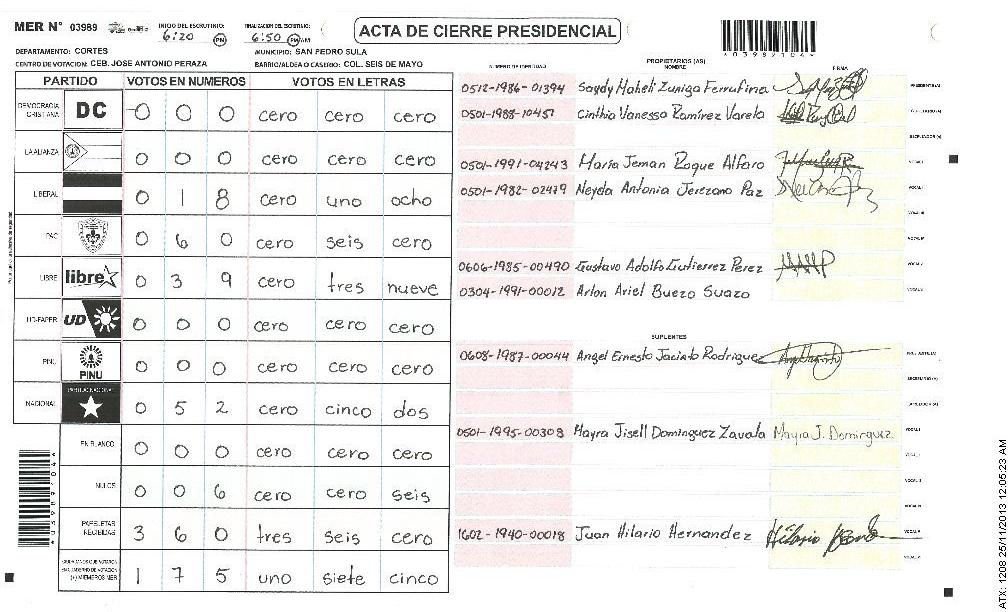 MER N° 03989
INICIO DEL ESCRUTINIO: 6:20 PM
FINALIZACION DEL ESCRUTINIO: 6:50 PM AM
ACTA DE CIERRE PRESIDENCIAL
*03989104*
DEPARTAMENTO: CORTES MUNICIPIO: SAN PEDRO SULA
CENTRO DE VOTACION: CEB. JOSE ANTONIO PERAZA BARRIO/ALDEA O CASERIO: COL. SEIS DE MAYO
PARTIDO VOTOS EN NUMEROS VOTOS EN LETRAS
DEMOCRACIA CRISTIANA DC 0 0 0 cero cero cero
LA ALIANZA 0 0 0 cero cero cero
LIBERAL 0 1 8 cero uno ocho
PAC 0 6 0 cero seis cero
LIBRE libre 0 3 9 cero tres nueve
UD-FAPER UD 0 0 0 cero cero cero
PINU PINU 0 0 0 cero cero cero
NACIONAL PARTIDO NACIONAL 0 5 2 cero cinco dos
EN BLANCO 0 0 0 cero cero cero
NULOS 0 0 6 cero cero seis
PAPELETAS RECIBIDAS 3 6 0 tres seis cero
CIUDADANOS QUE VOTARON EN CUADERNO DE VOTACION (+) MIEMBROS MER 1 7 5 uno siete cinco
NUMERO DE IDENTIDAD PROPIETARIOS (AS) NOMBRE FIRMA
0512-1986-01394 Saydy Maheli Zuniga Ferrufino PRESIDENTE (A)
0501-1988-10457 Cinthia Vanessa Ramírez Varela SECRETARIO (A)
ESCRUTADOR (A)
0501-1991-04243 María Jeman Roque Alfaro VOCAL I
0501-1982-02479 Neyda Antonia Jerezano Paz VOCAL II
VOCAL III
VOCAL IV
0606-1985-00490 Gustavo Adolfo Gutierrez Perez VOCAL V
0304-1991-00012 Arlon Ariel Buezo Suazo
SUPLENTES
0608-1987-00044 Angel Ernesto Jacinto Rodrigue PRESIDENTE (A)
SECRETARIO (A)
ESCRUTADOR (A)
0501-1995-00308 Mayra Jisell Dominguez Zavala Mayra J. Dominguez. VOCAL I
1602-1940-00018 Juan Hilario Hernandez Hilario
*03989104*
ATX: 1208 25/11/2013 12:05:23 AM